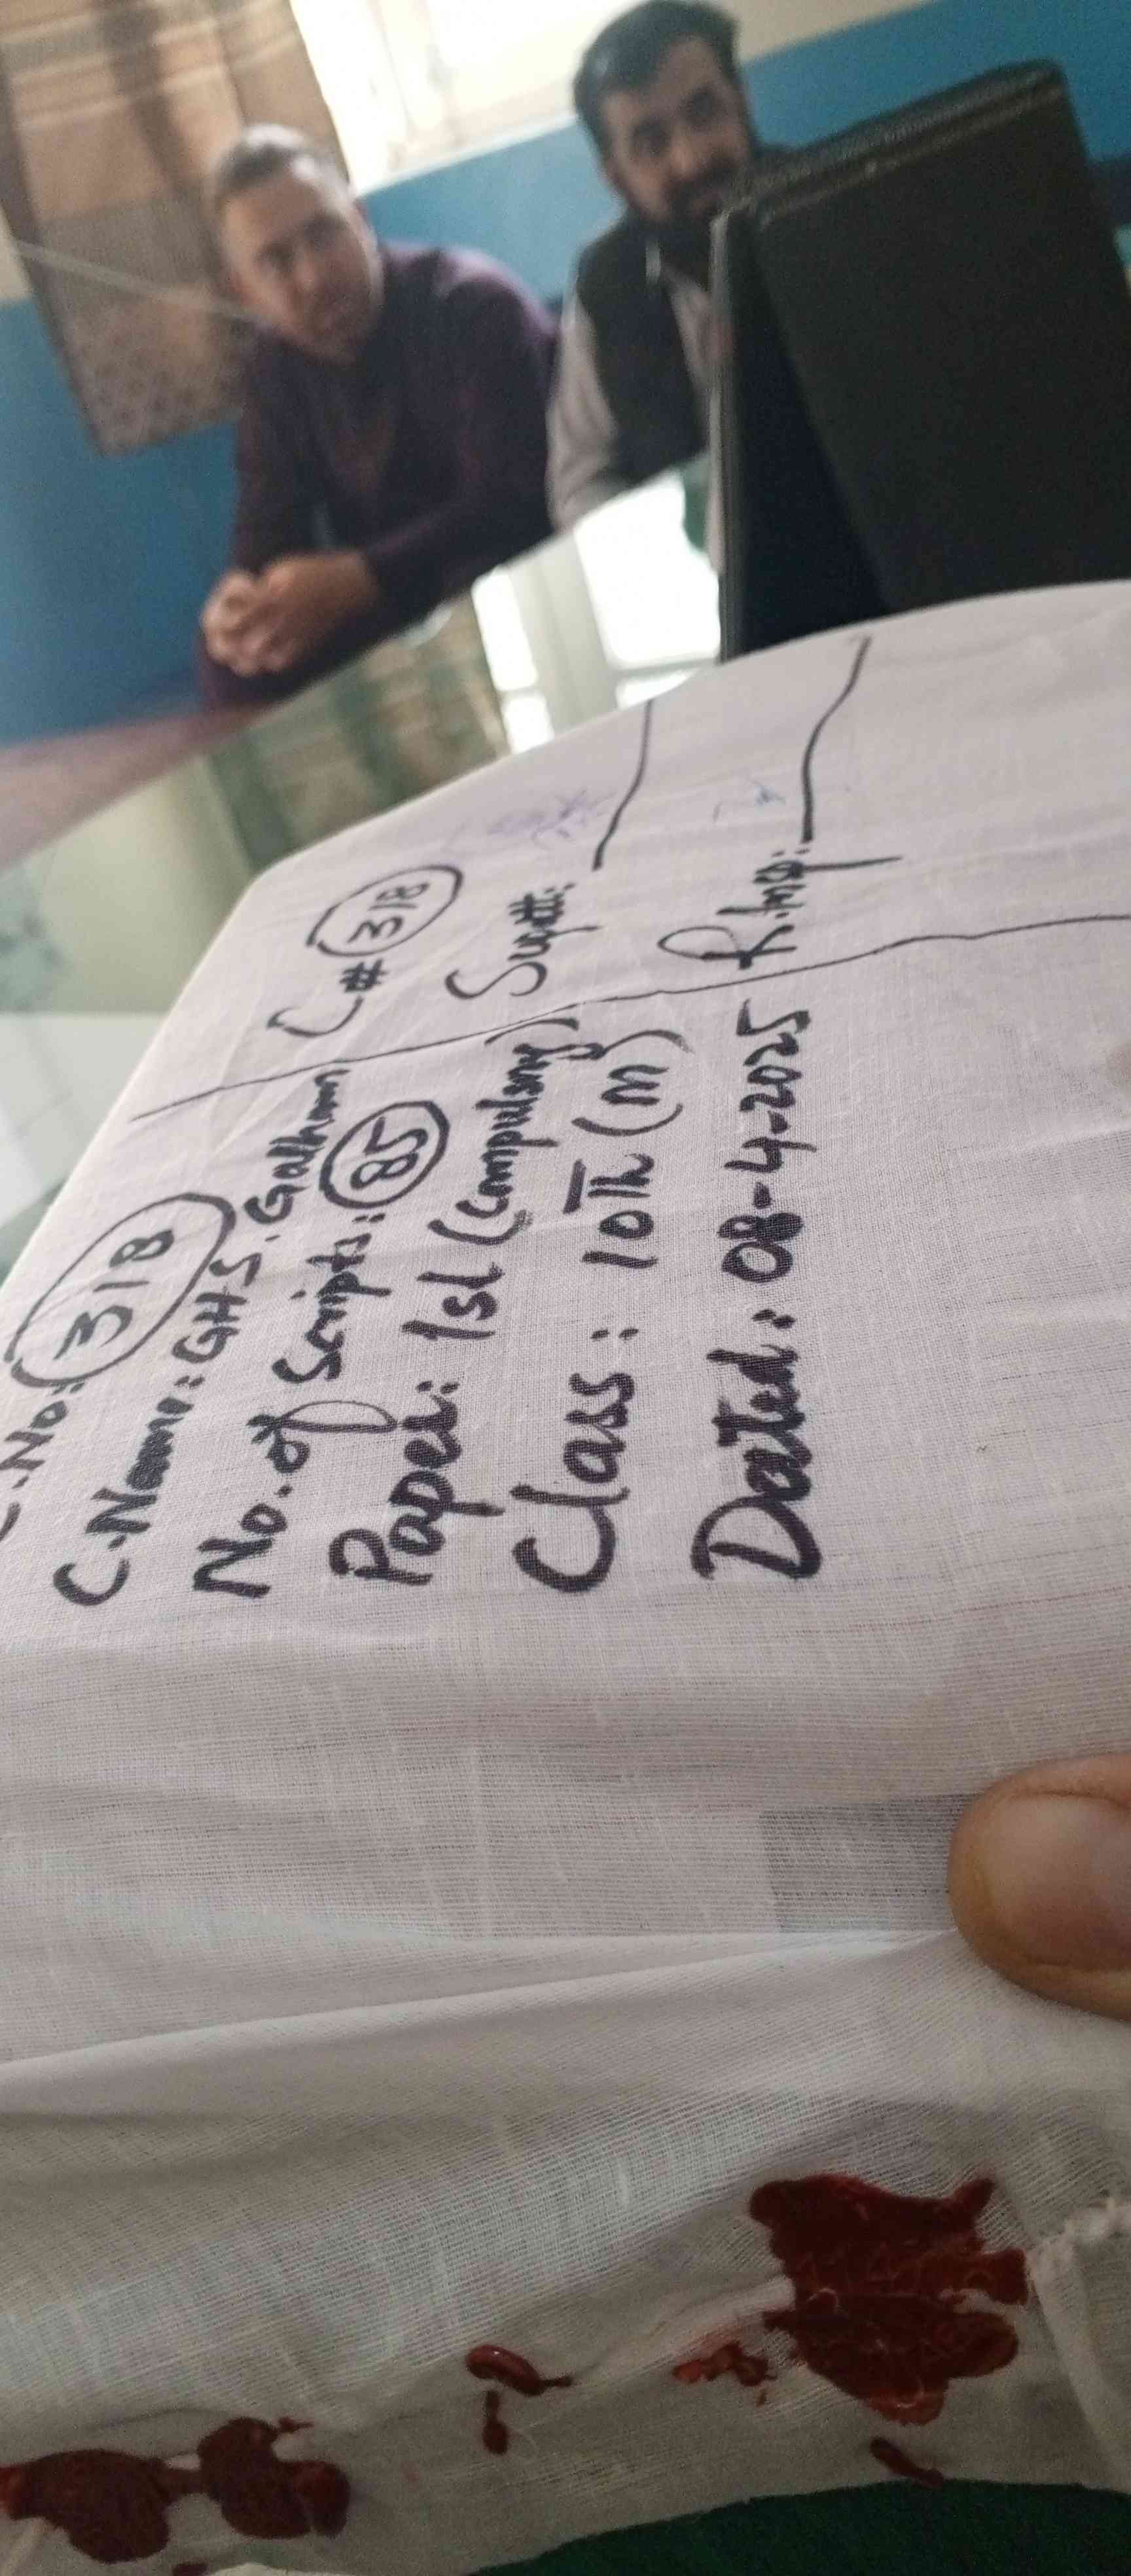 C.No: 318
C.Name: G.H.S. Galham
No. of Script: 85
Paper: 1st (Compulsory)
Class: 10th (M)
Dated: 08-4-2025
C# 318
Supdtt:
R.Insp: